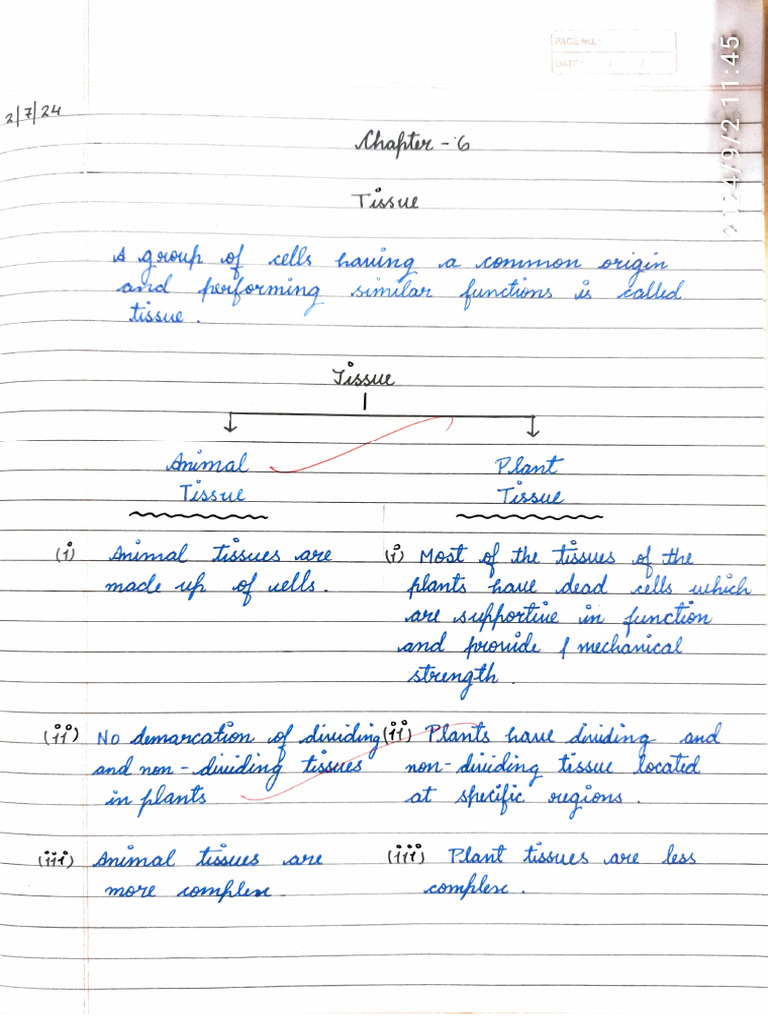 PAGE NO. :
DATE : / /
2024/9/2 11:45
2/7/24
Chapter - 6
Tissue
A group of cells having a common origin
and performing similar functions is called
tissue.
Tissue
Animal
Tissue
Plant
Tissue
(i) Animal tissues are
made up of cells.
(i) Most of the tissues of the
plants have dead cells which
are supportive in function
and provide mechanical
strength.
(ii) No demarcation of dividing
and non-dividing tissues
in plants
(ii) Plants have dividing and
non-dividing tissue located
at specific regions.
(iii) Animal tissues are
more complex.
(iii) Plant tissues are less
complex.